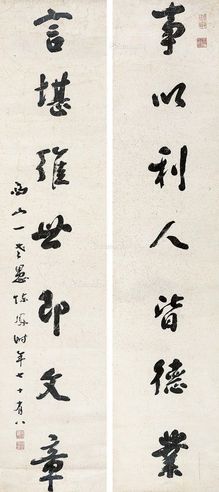 事以利人皆德業
言堪維世即文章
西山一老愚陳鳳時年七十有八